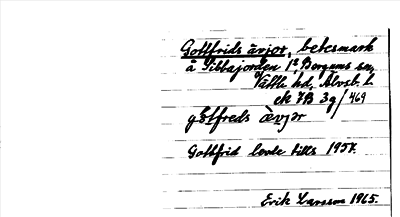 Gottfrids ävjor, betesmark
å Gibbajorden 1² Bergums sn,
Vättle hd, Älvsb. L
ek 7B 3g/469
götfreds ävjor
Gottfrid levde tills 1957.
Erik Larsson 1965.